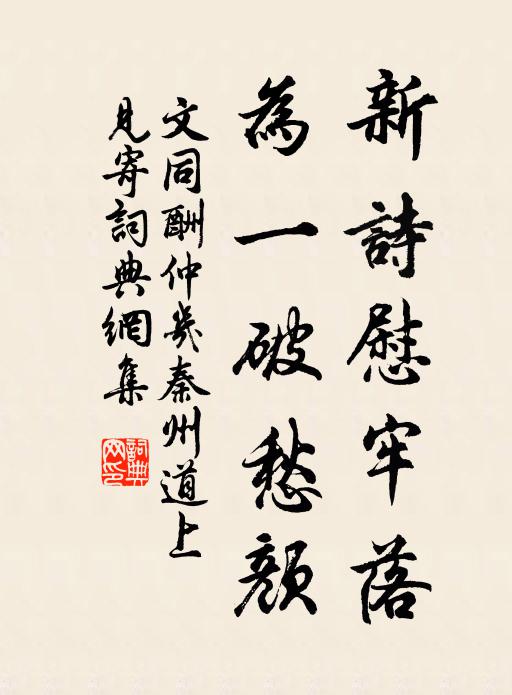 新詩慰牢落
為一破愁顏
文同酬仲幾秦州道上
見寄詞典網集
詞典網印